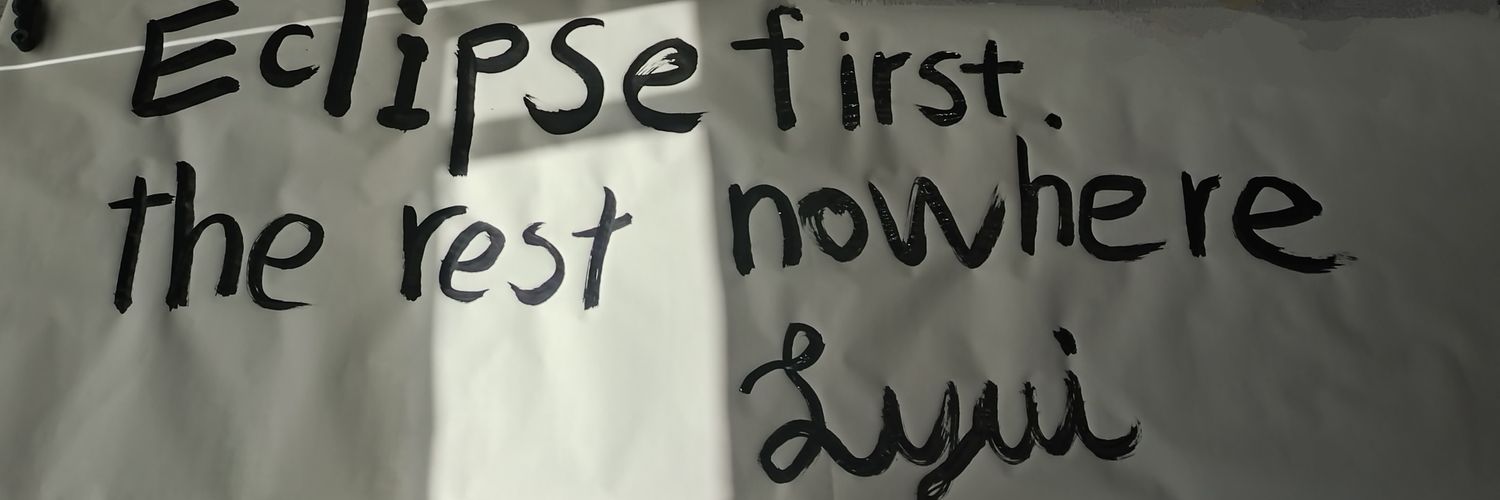 Eclipse first.
the rest nowhere
Lyui